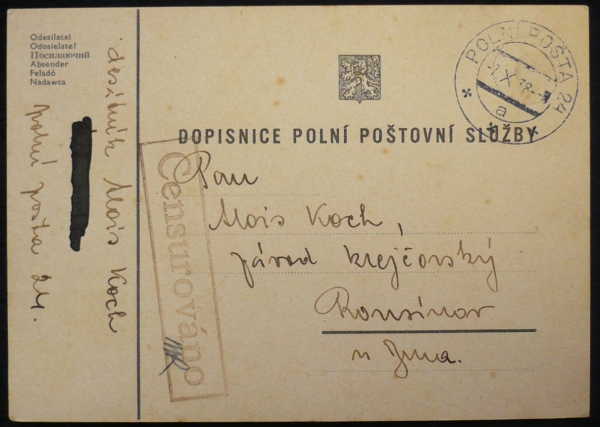 Odesílatel
Odosielateľ
Посилаючий
Absender
Feladó
Nadawca
desátník Alois Koch
polní pošta 24.
POLNÍ POŠTA 24
7.X.38
a
DOPISNICE POLNÍ POŠTOVNÍ SLUŽBY
Censurováno
Pan
Alois Koch,
závod krejčovský
u Brna.